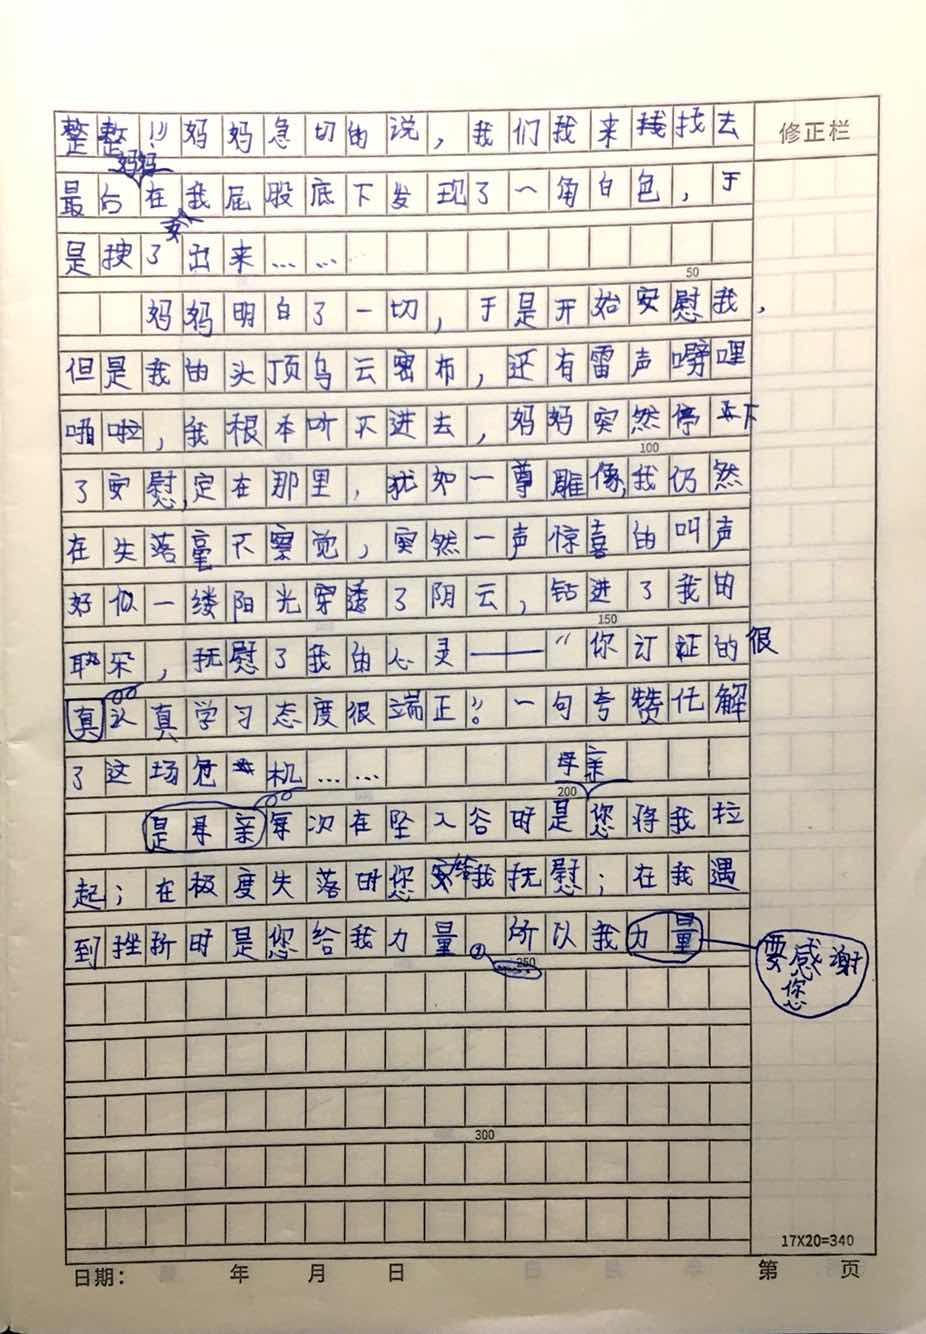 整整!”妈妈急切的说，我们找来找找去
修正栏
妈妈
最后在我屁股底下发现了一角白色，于
是拽了出来……
50
妈妈明白了一切，于是开始安慰我，
但是我的头顶乌云密布，还有雷声噼哩
啪啦，我根本听不进去，妈妈突然停下
100
了安慰,定在那里，犹如一尊雕像,我仍然
在失落毫不察觉，突然一声惊喜的叫声
好似一缕阳光穿透了阴云，钻进了我的
150
耳朵，抚慰了我的心灵——“你订正的很
真认真学习态度很端正”。一句夸赞化解
了这场危机……
母亲
200
是母亲每次在坠入谷时是您将我拉
起；在极度失落时您给我抚慰；在我遇
到挫折时是您给我力量。所以我力量
要感谢
您
250
300
17X20=340
日期： 年 月 日 第 页